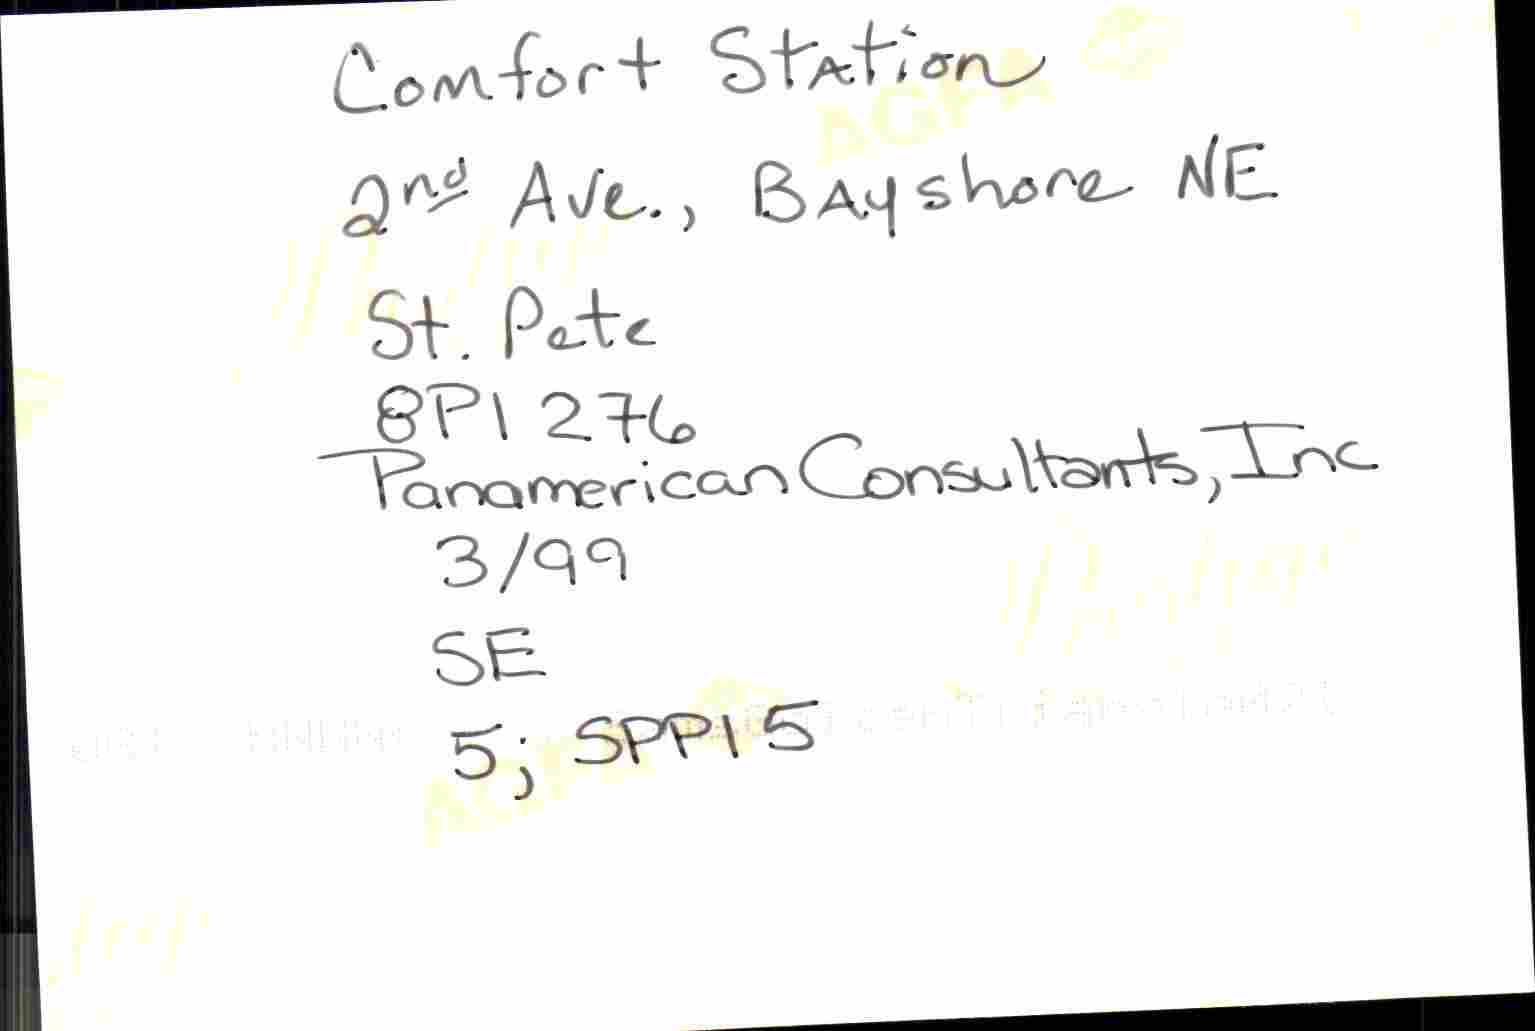 Comfort Station
2nd Ave., Bayshore NE
St. Pete
8PI 276
Panamerican Consultants, Inc
3/99
SE
5; SPPI 5
AGFA
AGFA